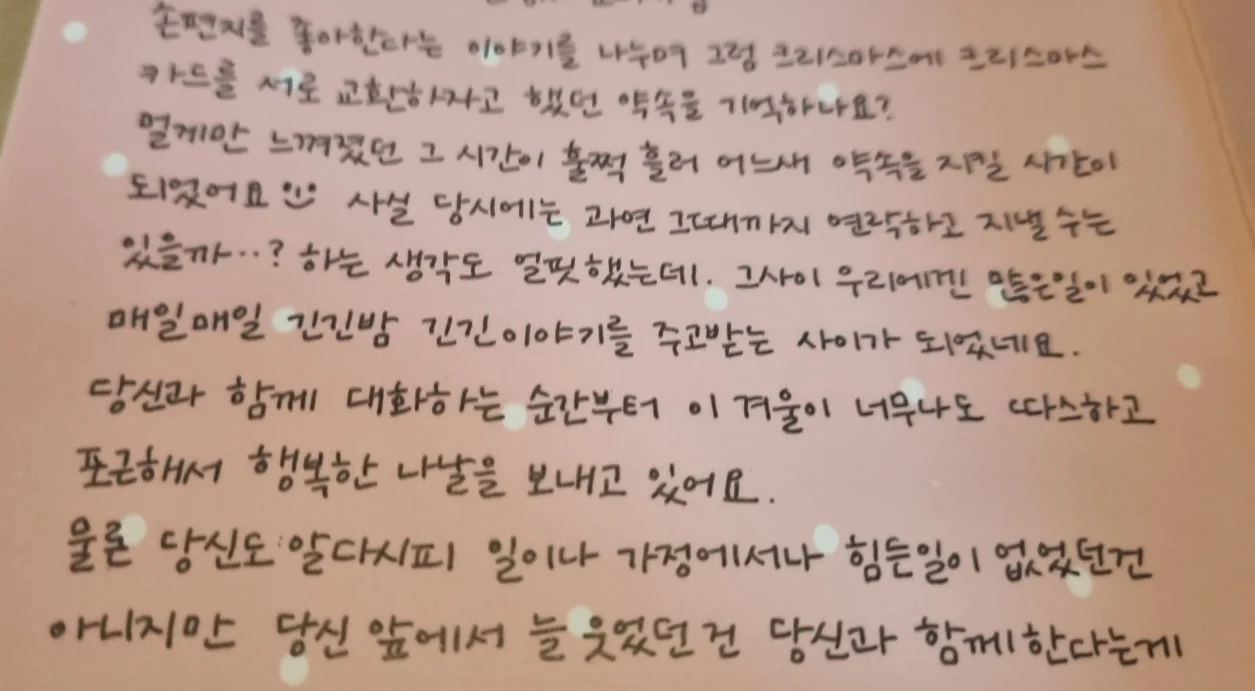 손편지를 좋아한다는 이야기를 나누며 그럼 크리스마스에 크리스마스
카드를 서로 교환하자고 했던 약속을 기억하나요?
멀게만 느껴졌던 그 시간이 훌쩍 흘러 어느새 약속을 지킬 시간이
되었어요 사실 당시에는 과연 그때까지 연락하고 지낼 수는
있을까...? 하는 생각도 얼핏했는데. 그사이 우리에겐 많은일이 있었고
매일매일 긴긴밤 긴긴이야기를 주고받는 사이가 되었네요.
당신과 함께 대화하는 순간부터 이 겨울이 너무나도 따스하고
포근해서 행복한 나날을 보내고 있어요.
물론 당신도 알다시피 일이나 가정에서나 힘든일이 없었던건
아니지만 당신 앞에서 늘 웃었던 건 당신과 함께한다는게